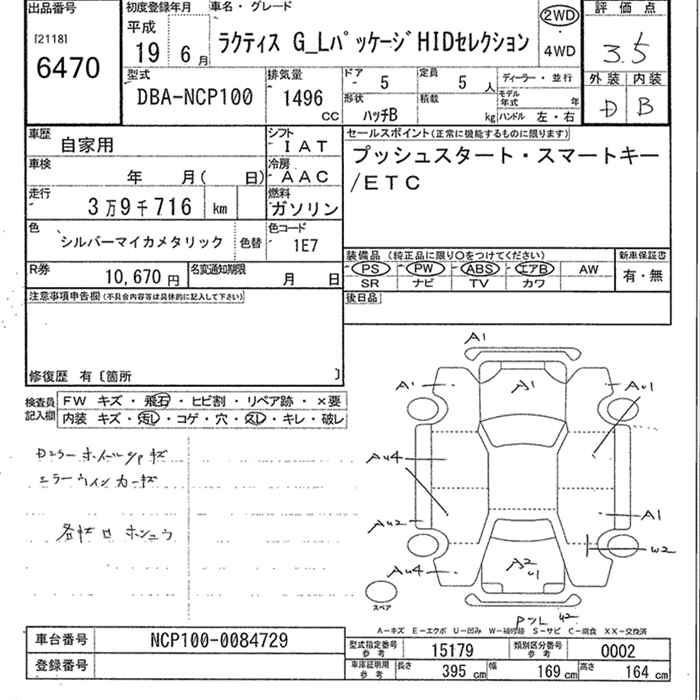 出品番号
[2118]
6470
初度登録年月
平成
19 年 6 月
車名・グレード
ラクティス G_Lパッケージ HIDセレクション
2WD
・
4WD
評価点
3.5
外装 内装
D B
型式
DBA-NCP100
排気量
1496
CC
ドア
5
定員
5 人
形状
ハッチB
積載
kg
ディーラー・並行
モデル年式 年
ハンドル 左・右
車歴
自家用
シフト
IAT
車検
年 月( 日)
冷房
AAC
走行
3万9千716 km
燃料
ガソリン
色
シルバーマイカメタリック
色替
色コード
1E7
R券
10,670 円
名変通知期限
月 日
セールスポイント(正常に機能するものに限ります)
プッシュスタート・スマートキー
/ETC
装備品 (純正品に限り○をつけてください)
PS PW ABS エアB AW
SR ナビ TV カワ
新車保証書
有・無
後日品
注意事項申告欄(不具合内容等は具体的に記入して下さい)
修復歴 有〔箇所 〕
検査員
記入欄
FW キズ・飛石・ヒビ割・リペア跡・×要
内装 キズ・汚レ・コゲ・穴・スレ・キレ・破レ
A1
A1
A1
AU1
AU4
AU2
A1
W2
AU4
A2
U1
スペア
W2
A-キズ E-エクボ U-凹み W-補修跡 S-サビ C-腐食 XX-交換済
車台番号
NCP100-0084729
登録番号
型式指定番号
参考
15179
類別区分番号
参考
0002
車庫証明用
参考
長さ
395 cm
幅
169 cm
高さ
164 cm